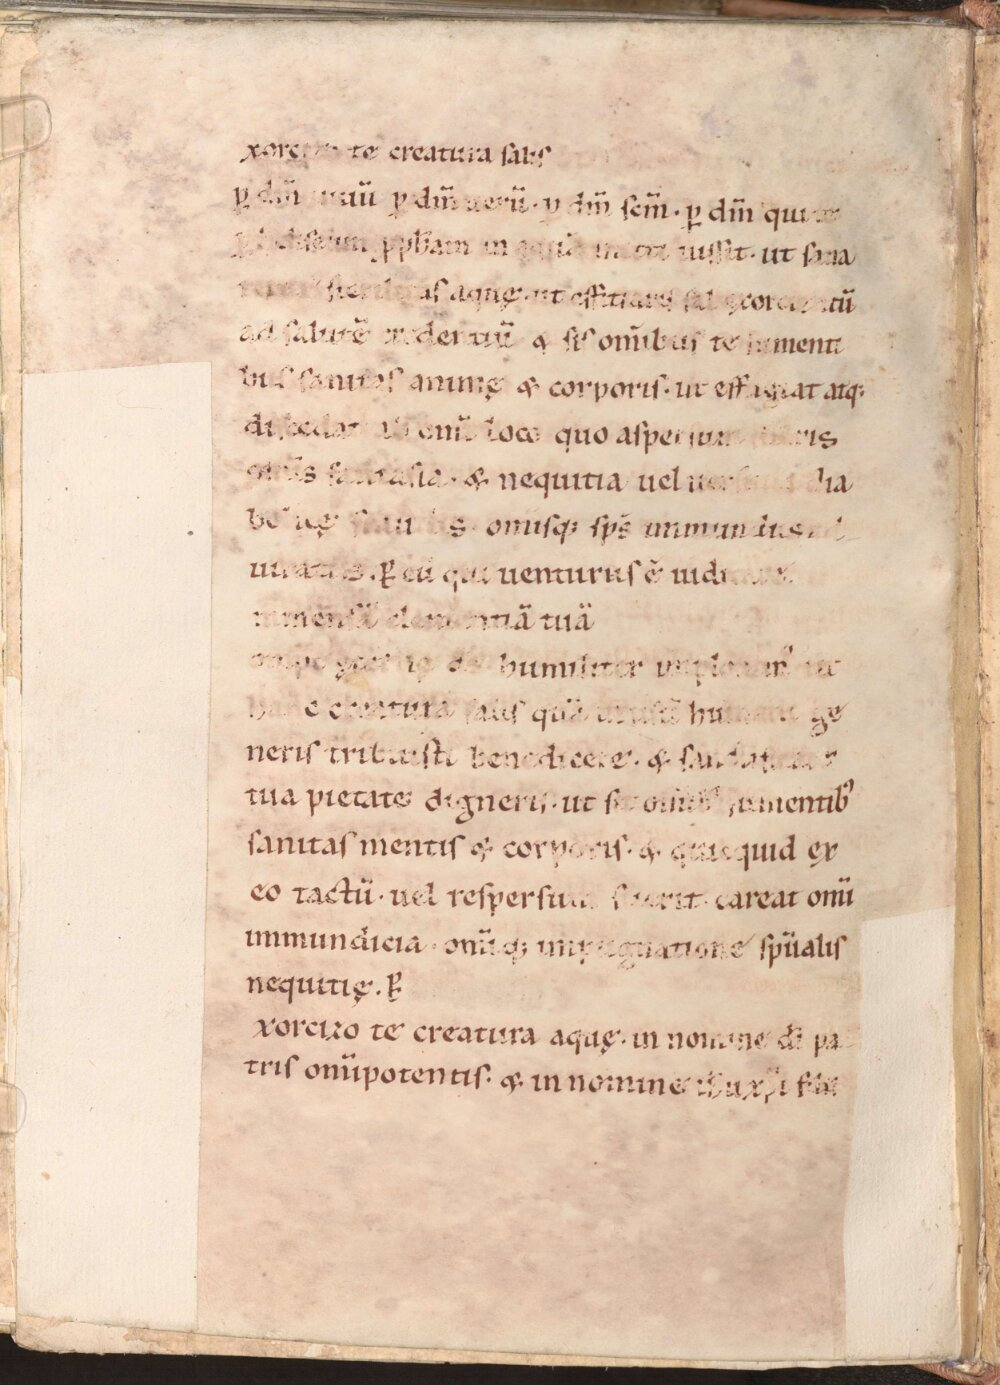 xorcizo te creatura salis
p̱ dm̄ uiuū p̱ dm̄ uerū · p̱ dm̄ scm̄ · p̱ dm̄ qui te
p̱ heliseum p̱pħam in aquā mitti iussit · ut sana
retur sterilitas aquę · ut efficiaris sal exorcizatū
ad salutē credentiū & sis om̄ibus te sumenti
bus sanitas animę & corporis · ut effugiat atq;
discedat ab om̄i loco quo aspersum fueris
om̄is fantasia · & nequitia uel uersutia dia
bolicę fraudis · om̄isq; sp̄s immundus
p̱ eū qui uenturus ē iudi
mmensā clementiā tuā
omp̄ ęternę ds̄ humiliter imploram᷒ ut
hanc creaturā salis quā in usū humani ge
neris tribuisti benedicere · & sanctificare
tua pietate digneris · ut sit om̄ib᷒ sumentib᷒
sanitas mentis & corporis · & quicquid ex
eo tactū · uel respersum fuerit careat om̄i
immundicia · om̄iq; impugnatione sp̄ualis
nequitię · p̱
xorcizo te creatura aquę · in nomine dī pa
tris om̄ipotentis · & in nomine iħu xp̄i filii